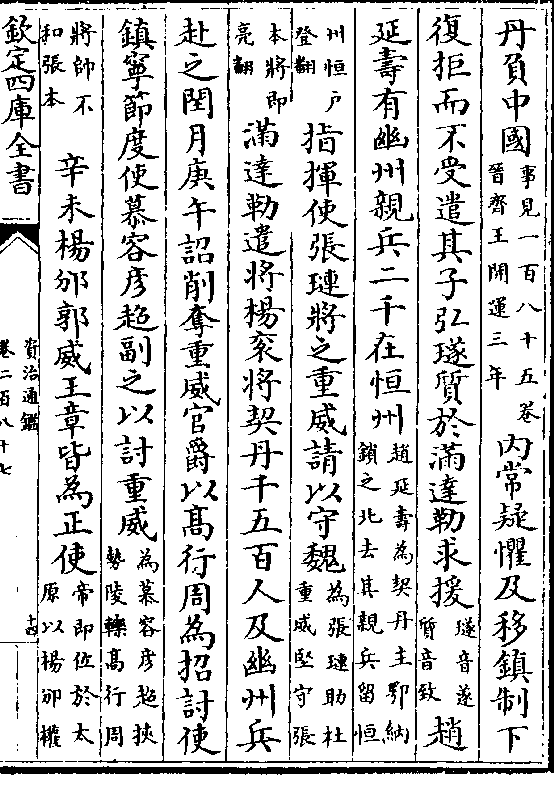 丹負中國事見一百八十五卷晉齊王開運三年內常疑懼及移鎮制下
復拒而不受遣其子弘璲質於滿達勒求援璲音遂質音致趙
延壽有幽州親兵二千在恒州趙延壽為契丹主鄂納鎖之北去其親兵留恒
州恒戶登翻指揮使張璉將之重威請以守魏為張璉助杜重威堅守張
本將即亮翻滿達勒遣將楊衮將契丹千五百人及幽州兵
赴之閏月庚午詔削奪重威官爵以高行周為招討使
鎮寧節度使慕容彥超副之以討重威為慕容彥超挾勢陵轢高行周
將帥不和張本辛未楊邠郭威王章皆為正使帝即位於太原以楊邠權
欽定四庫全書
資治通鑑
卷二百八十七
十四